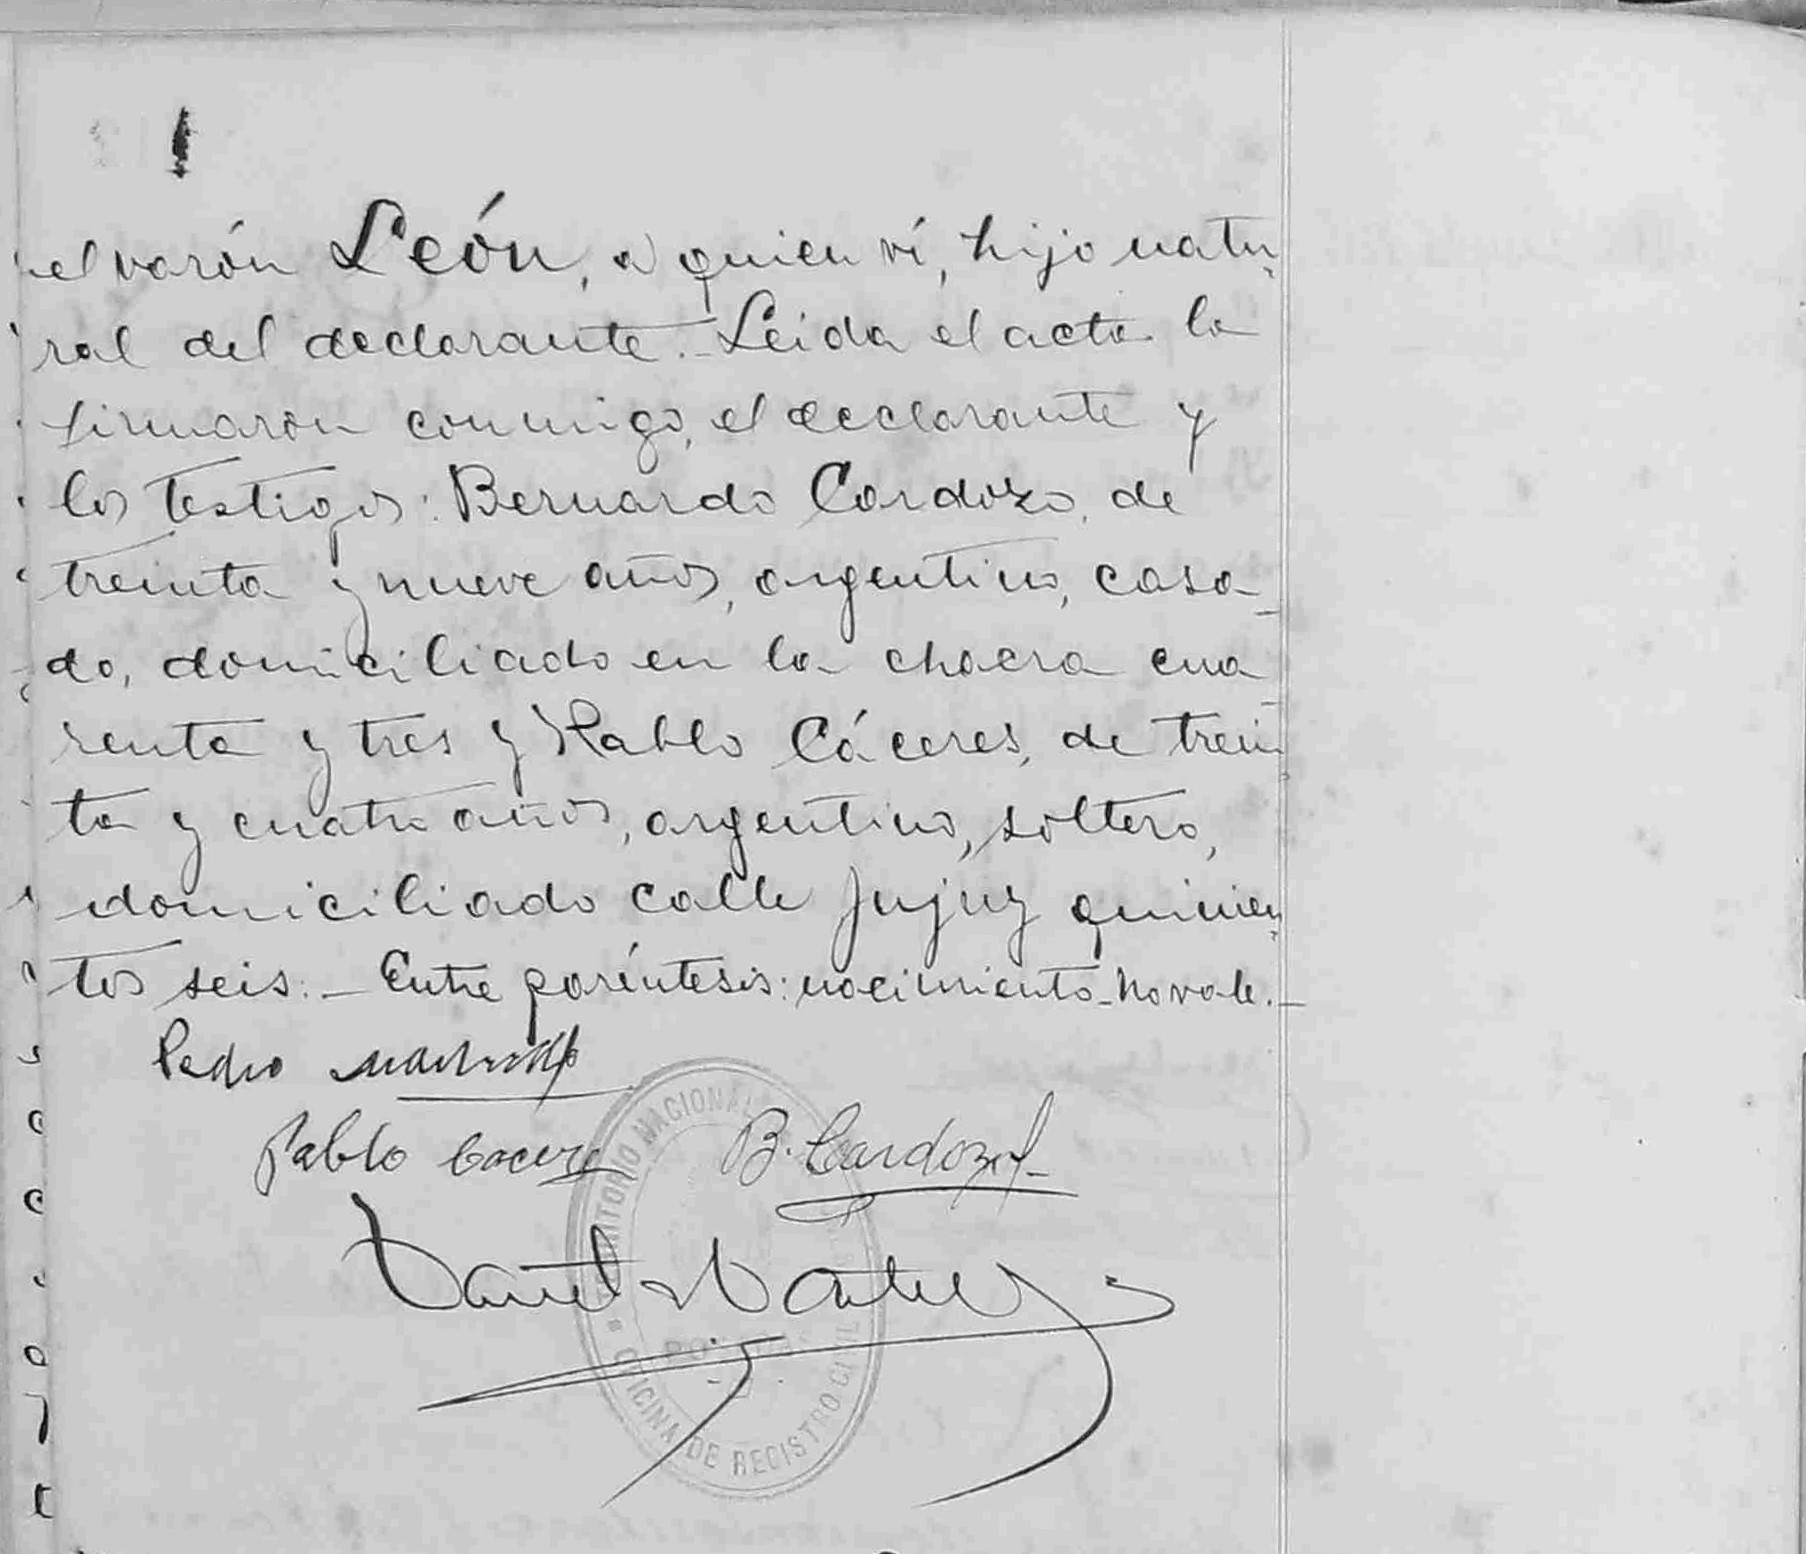 el varón León, a quien ví, hijo natu-
ral del declarante.- Leida el acta la
firmaron conmigo, el declarante y
los testigos: Bernardo Cardozo, de
treinta y nueve años, argentino, casa-
do, domiciliado en la chacra cua-
renta y tres y Pablo Cáceres, de trein-
ta y cuatro años, argentino, soltero,
domiciliado calle Jujuy quinien-
tos seis.- Entre paréntesis: nacimiento-no vale.-
Pedro
Pablo Caceres B. Cardozo
NACIONAL
OFICINA DE REGISTRO CIVIL